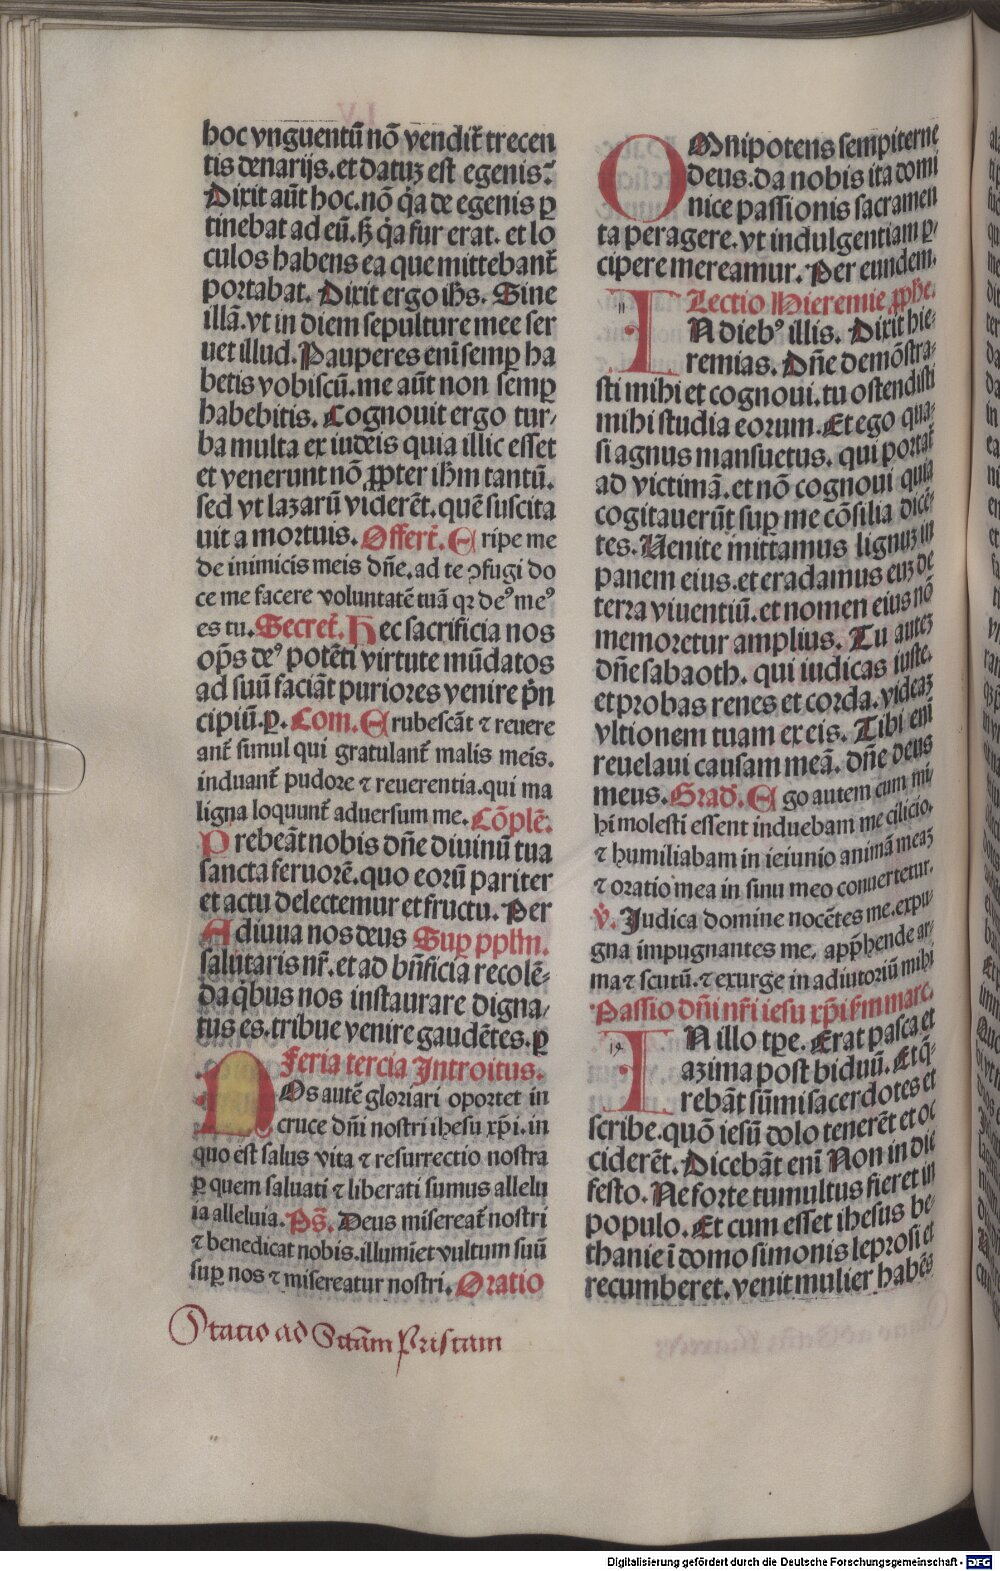 hoc vnguentū nō vendit̄ trecen
tis denarijs. et datuꝫ est egenis?
Dixit aūt hoc. nō q̄a de egenis ꝑ
tinebat ad eū. ꝫ q̄a fur erat. et lo
culos habens ea que mittebant̄
portabat. Dixit ergo ih̄s. Sine
illā. vt in diem sepulture mee ser
uet illud. Pauperes eni̅ semꝑ ha
betis vobiscū. me aūt non semꝑ
habebitis. Cognouit ergo tur/
ba multa ex iudeis quia illic esset
et venerunt nō ꝓpter ih̄m tantū.
sed vt lazarū viderēt. quē suscita
uit a mortuis. Offert̄. Eripe me
de inimicis meis dn̄e. ad te ꝯfugi do
ce me facere voluntatē tuā qꝛ deꝰ meꝰ
es tu. Secret̄. Hec sacrificia nos
op̄s deꝰ potēti virtute mūdatos
ad suū faciāt puriores venire p̄n
cipiū. ꝑ. Com. Erubescāt ⁊ reuere
ant̄ simul qui gratulant̄ malis meis.
induant̄ pudore ⁊ reuerentia. qui ma
ligna loquunt̄ aduersum me. Cōplē.
Prebeāt nobis dn̄e diuinū tua
sancta feruorē. quo eorū pariter
et actu delectemur et fructu. Per
Adiuua nos deus Suꝑ pplm̄.
salutaris nr̄. et ad bn̄ficia recolē-
da q̄bus nos instaurare digna/
tus es. tribue venire gaudētes. ꝑ
Feria tercia Introitus.
NOs autē gloriari oportet in
cruce dn̄i nostri ihesu xp̄i. in
quo est salus vita ⁊ resurrectio nostra
ꝑ quem saluati ⁊ liberati sumus allelu
ia alleluia. Ps̄. Deus misereat̄ nostri
⁊ benedicat nobis. illumiet vultum suū
suꝑ nos ⁊ misereatur nostri. Oratio
Statio ad Sctām Priscam
OMnipotens sempiterne
deus. da nobis ita domi
nice passionis sacramen
ta peragere. vt indulgentiam ꝑ/
cipere mereamur. Per eundem.
Lectio Hieremie ꝓphe.
IN diebꝰ illis. Dixit hie-
remias. Dn̄e demōstra-
sti mihi et cognoui. tu ostendisti
mihi studia eorum. Et ego qua-
si agnus mansuetus. qui portat̄
ad victimā. et nō cognoui quia
cogitauerūt suꝑ me cōsilia dicē-
tes. Uenite mittamus lignuꝫ in
panem eius. et eradamus euꝫ de
terra viuentiū. et nomen eius nō
memoretur amplius. Tu auteꝫ
dn̄e sabaoth. qui iudicas iuste.
et probas renes et corda. videaꝫ
vltionem tuam ex eis. Tibi eni̅
reuelaui causam meā. dn̄e deus
meus. Grad̄. Ego autem cum mi/
hi molesti essent induebam me cilicio.
⁊ humiliabam in ieiunio animā meaꝫ
⁊ oratio mea in sinu meo conuertetur.
℣. Judica domine nocētes me. expu-
gna impugnantes me. app̄hende ar-
ma ⁊ scutū. ⁊ exurge in adiutoriū mihi
Passio dn̄i nr̄i iesu xp̄i ẜm marc.
IN illo tꝑe. Erat pasca et
azima post biduū. Et q̄-
rebāt sūmi sacerdotes et
scribe. quō iesū dolo tenerēt et oc
ciderēt. Dicebāt eni̅ Non in die
festo. Ne forte tumultus fieret in
populo. Et cum esset ihesus be-
thanie ī domo simonis leprosi et
recumberet. venit mulier habēs
Digitalisierung gefördert durch die Deutsche Forschungsgemeinschaft - DFG